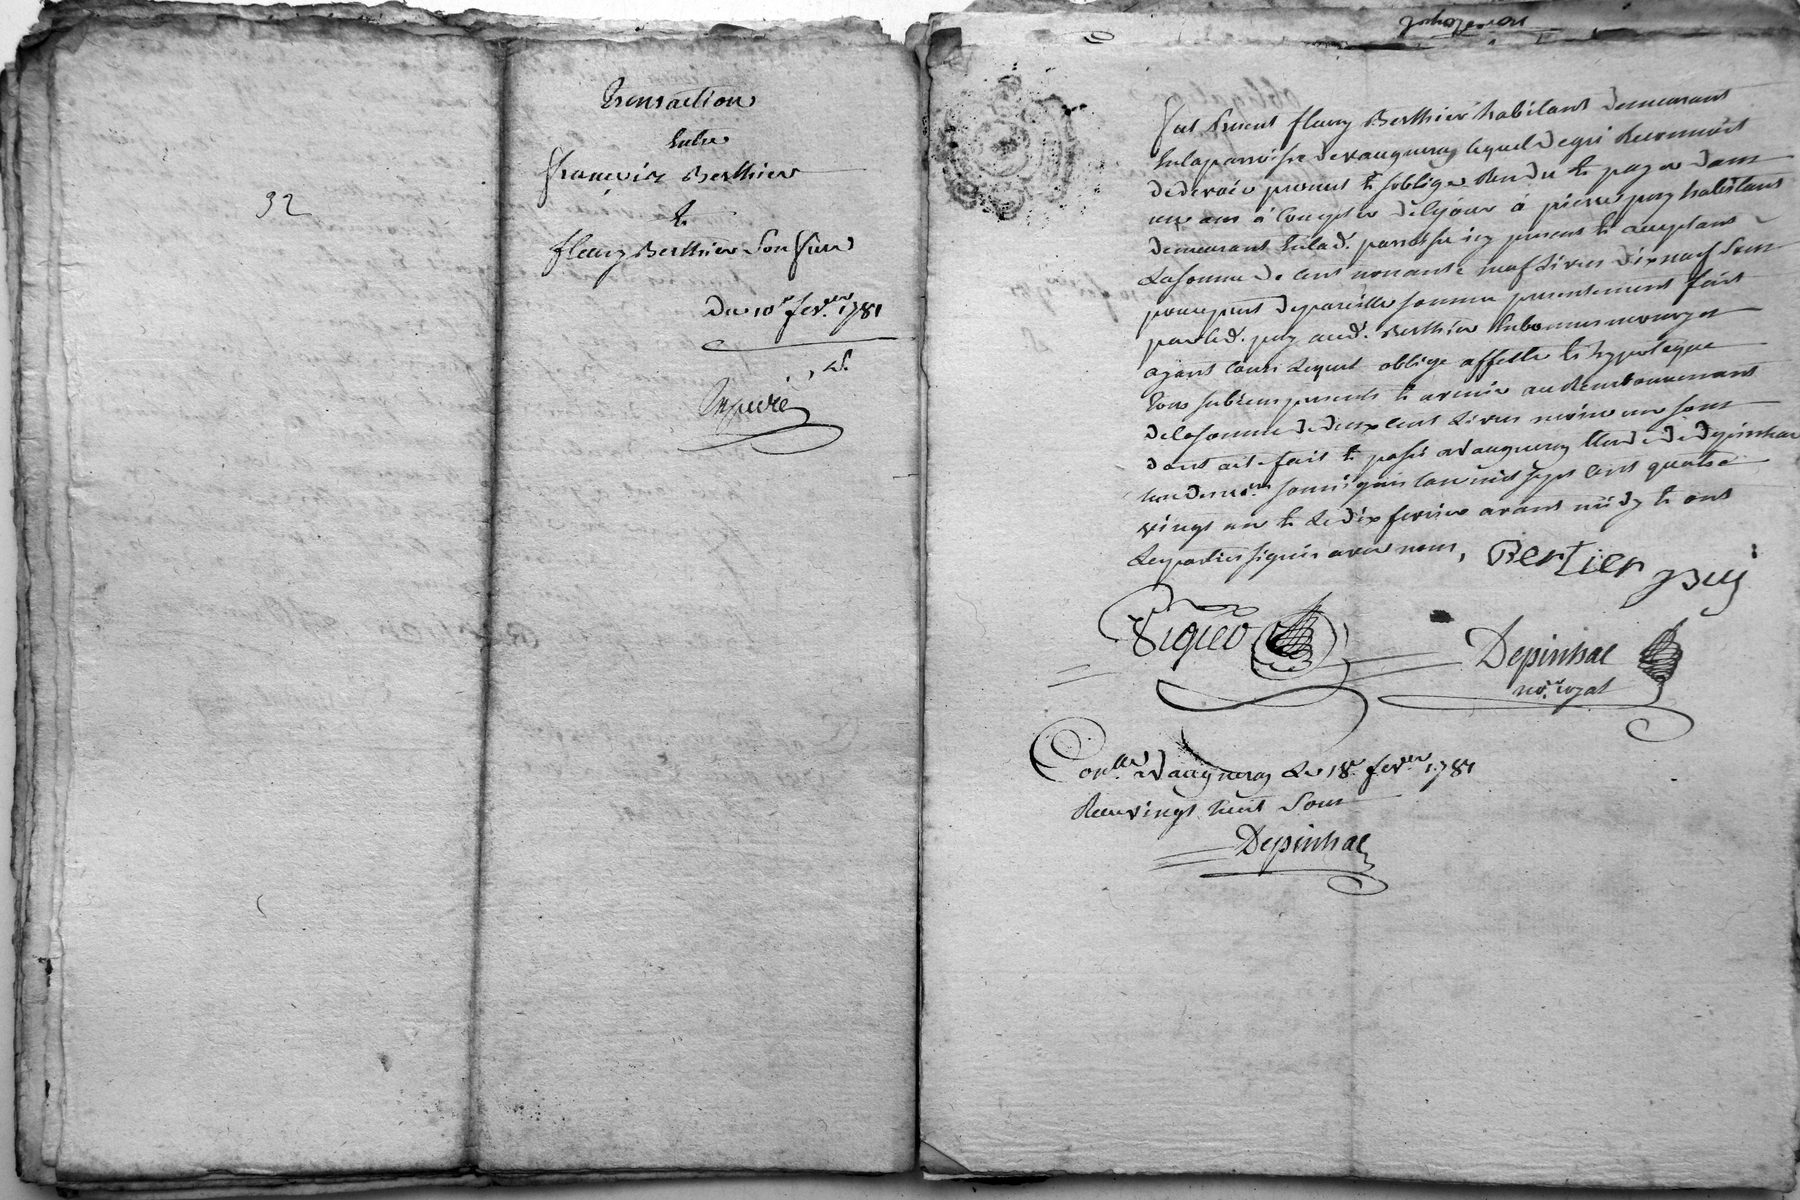 92
Transaction
Entre
François Berthier
Et
fleury Berthier Son frere
Du 10e fevrer 1781
Expedié
fut present fleury Berthier habitant demeurant
En la parroisse de vaugneray lequel de gré Reconnoit
et devoir promet Et s'oblige Rendre Et payer dans
un an à compter de ce jour à pierre puy habitant
demeurant En lad. parroisse icy present Et acceptant
La somme de cent nonante neuf Livres dix neuf Sous
pour prest de pareille somme presentement fait
par led. puy aud. Berthier En bonnes monoyes
ayant cours Lequel oblige affecte Et hypoteque
Tous ses biens presents Et avenir au Remboursement
de la somme de deux cent Livres moins un sous
dont acte fait Et passé a vaugneray Etude de depinhac
l'un des nores soussignés L'an mil sept cent quatre
vingt un Et Le dix fevrier avant midy Et ont
Les parties signés avec nous,
Bertier puy
Viquer
Depinhac
nore. royal
Conllé. a Vaugneray Le 18e. fevrer 1781
Reçu vingt huit Sous
Depinhac